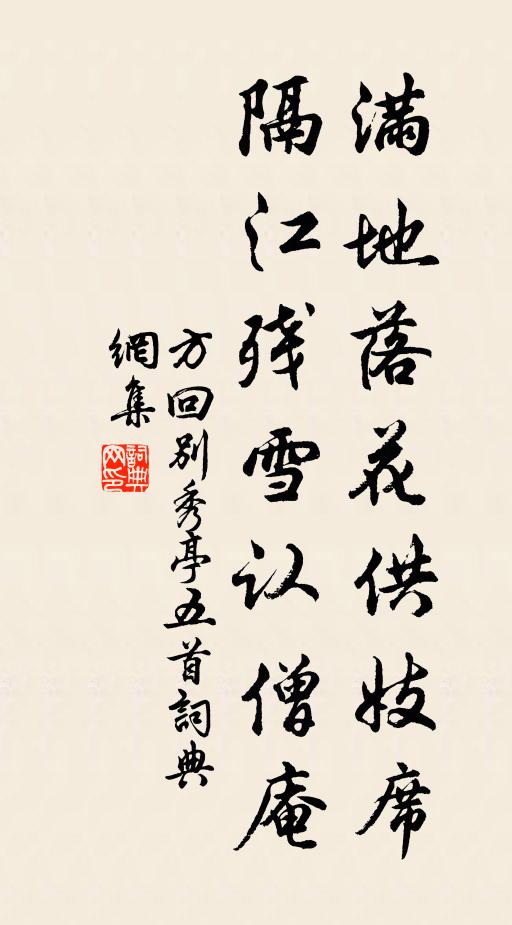 满地落花供妓席
隔江残雪认僧庵
方回别秀亭五首詞典
網集
詞典
网印